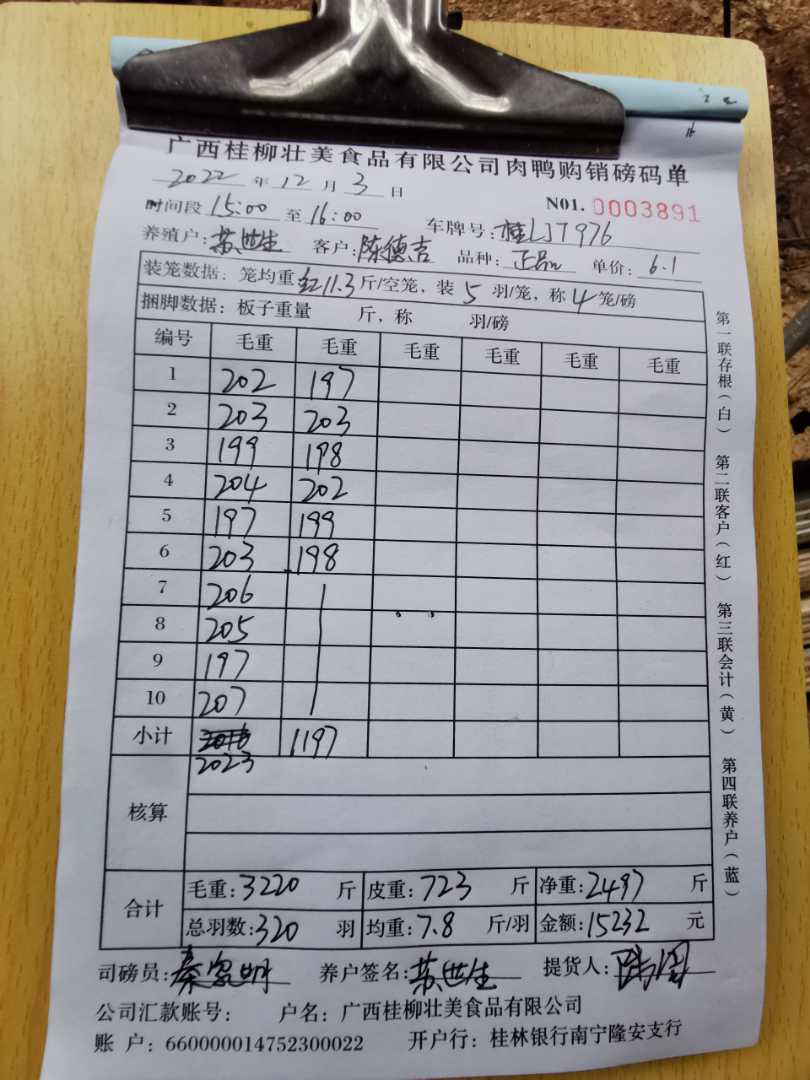 广西桂柳壮美食品有限公司肉鸭购销磅码单
2022 年 12 月 3 日
N01. 0003891
时间段 15:00 至 16:00 车牌号: 桂LJT976
养殖户: 苏世生 客户: 陈德吉 品种: 正品 单价: 6.1
装笼数据: 笼均重 红11.3 斤/空笼, 装 5 羽/笼, 称 4 笼/磅
捆脚数据: 板子重量 斤, 称 羽/磅
编号 毛重 毛重 毛重 毛重 毛重 毛重
1 202 197
2 203 203
3 199 198
4 204 202
5 197 199
6 203 198
7 206
8 205
9 197
10 207
小计 1197
2023
核算
合计
毛重: 3220 斤 皮重: 723 斤 净重: 2497 斤
总羽数: 320 羽 均重: 7.8 斤/羽 金额: 15232 元
司磅员: 养户签名: 苏世生 提货人:
公司汇款账号: 户名: 广西桂柳壮美食品有限公司
账 户: 660000014752300022 开户行: 桂林银行南宁隆安支行
第一联存根(白) 第二联客户(红) 第三联会计(黄) 第四联养户(蓝)